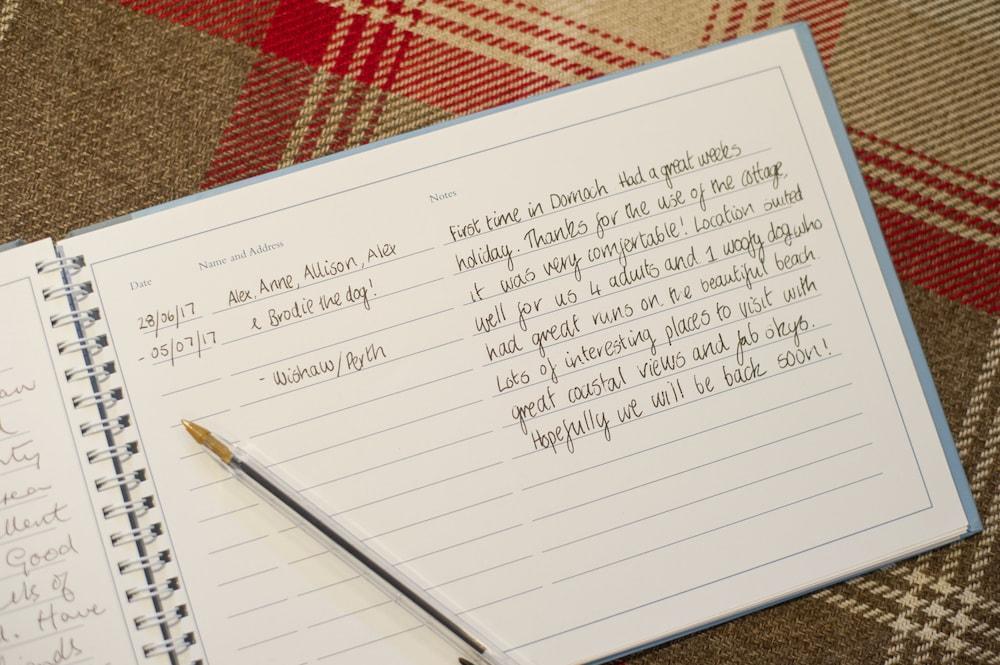 Date
Name and Address
Notes
28/06/17
- 05/07/17
Alex, Anne, Allison, Alex
& Brodie the dog!
- Wishaw/Perth
First time in Dornoch Had a great weeks
holiday. Thanks for the use of the cottage,
it was very comfortable! Location suited
well for us 4 adults and 1 woofy dog who
had great runs on the beautiful beach.
Lots of interesting places to visit with
great coastal views and fab skys.
Hopefully we will be back soon!
Good
of
. Have